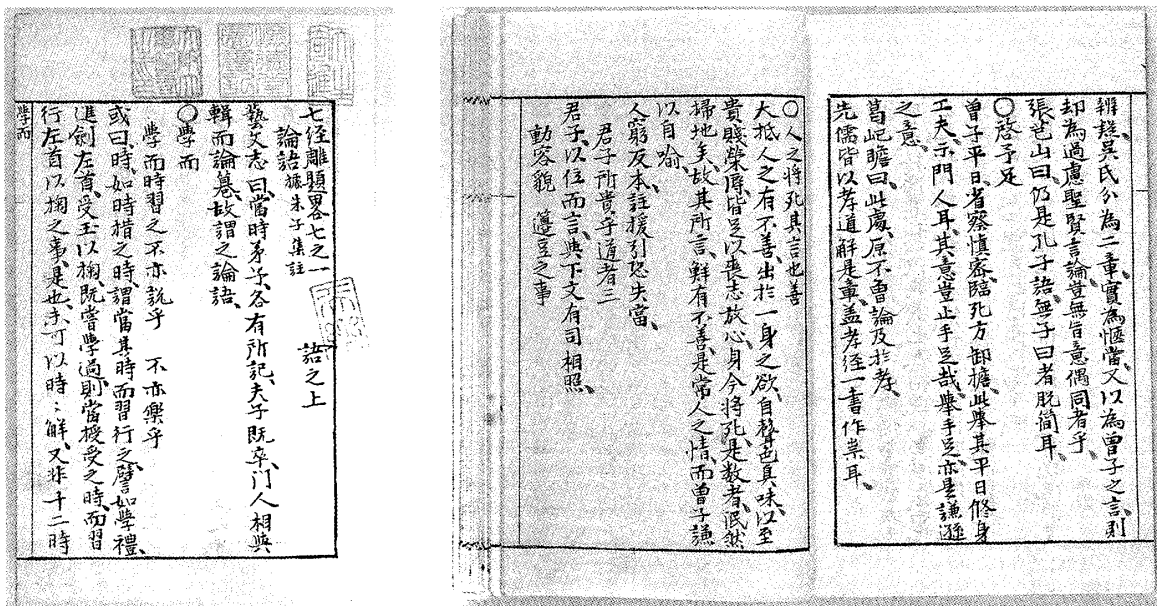 七経雕題畧七之一
論語 據朱子集註 語之上
藝文志曰、當時弟子、各有所記、夫子既卒、門人相與
輯而論篹、故謂之論語、
〇學而
學而時習之不亦説乎　不亦樂乎
或曰、時、如時措之時、謂當其時而習行之、譬如學禮、
進劍左首、受玉以掬、既嘗學過、則當授受之時、而習
行左首以掬之事、是也、未可以時〻解、又非十二時
學而
辨疑、吳氏分為二章、實為愜當、又以為曾子之言、則
却為過慮、聖賢言論、豈無旨意偶同者乎、
張芭山曰、仍是孔子語、無子曰者、脱簡耳、
〇啓予足
曾子平日、省察慎審、臨死方卸擔、此舉其平日脩身
工夫、示門人耳、其意豈止手足哉、舉手足、亦是謙遜
之意、
葛屺瞻曰、此處、原不曾論及於孝、
先儒皆以孝道解是章、盖孝経一書作祟耳、
〇人之將死其言也善
大抵人之有不善、出於一身之欲、自聲色臭味、以至
貴賤榮辱、皆足以喪志放心、身今將死、是數者、泯然
掃地矣、故其所言、鮮有不善、是常人之情、而曾子謙
以自喻、
人窮反本、註援引恐失當、
君子所貴乎道者三
君子、以位而言、與下文有司相照、
動容貌　籩豆之事